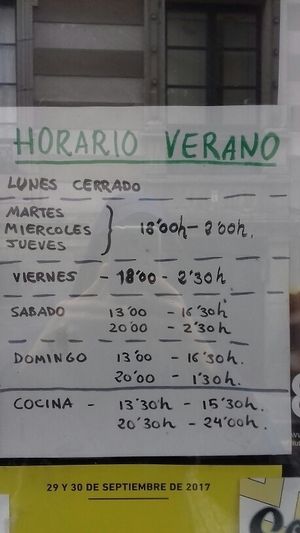 HORARIO VERANO
LUNES CERRADO
MARTES
MIERCOLES
JUEVES
18'00h - 2'00h.
VIERNES - 18'00 - 2'30h
SABADO 13'00 - 16'30h
20'00 - 2'30h.
DOMINGO 13'00 - 16'30h.
20'00 - 1'30h.
COCINA - 13'30h - 15'30h.
20'30h - 24'00h.
29 Y 30 DE SEPTIEMBRE DE 2017